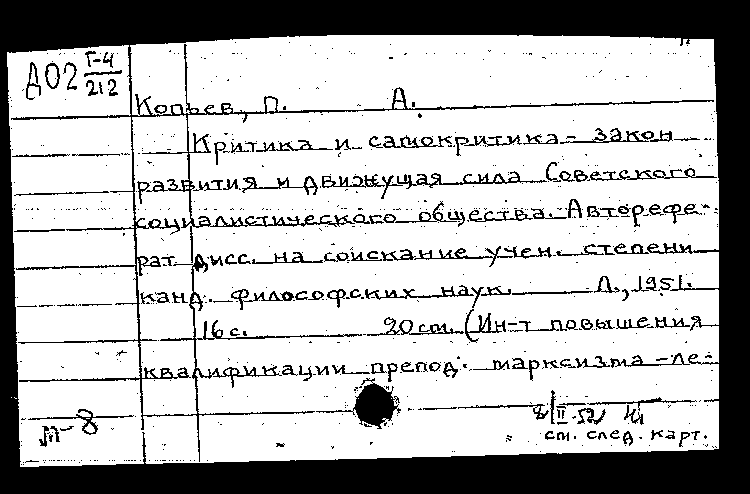 Д02 Г-4
212
Копьев, П. А.
Критика и самокритика - закон
развития и движущая сила Советского
социалистического общества. Авторефе-
рат дисс. на соискание учен. степени
канд. философских наук. Л., 1951.
16 с. 20 см. (Ин-т повышения
квалификации препод. марксизма-ле-
м-8
II-52
см. след. карт.